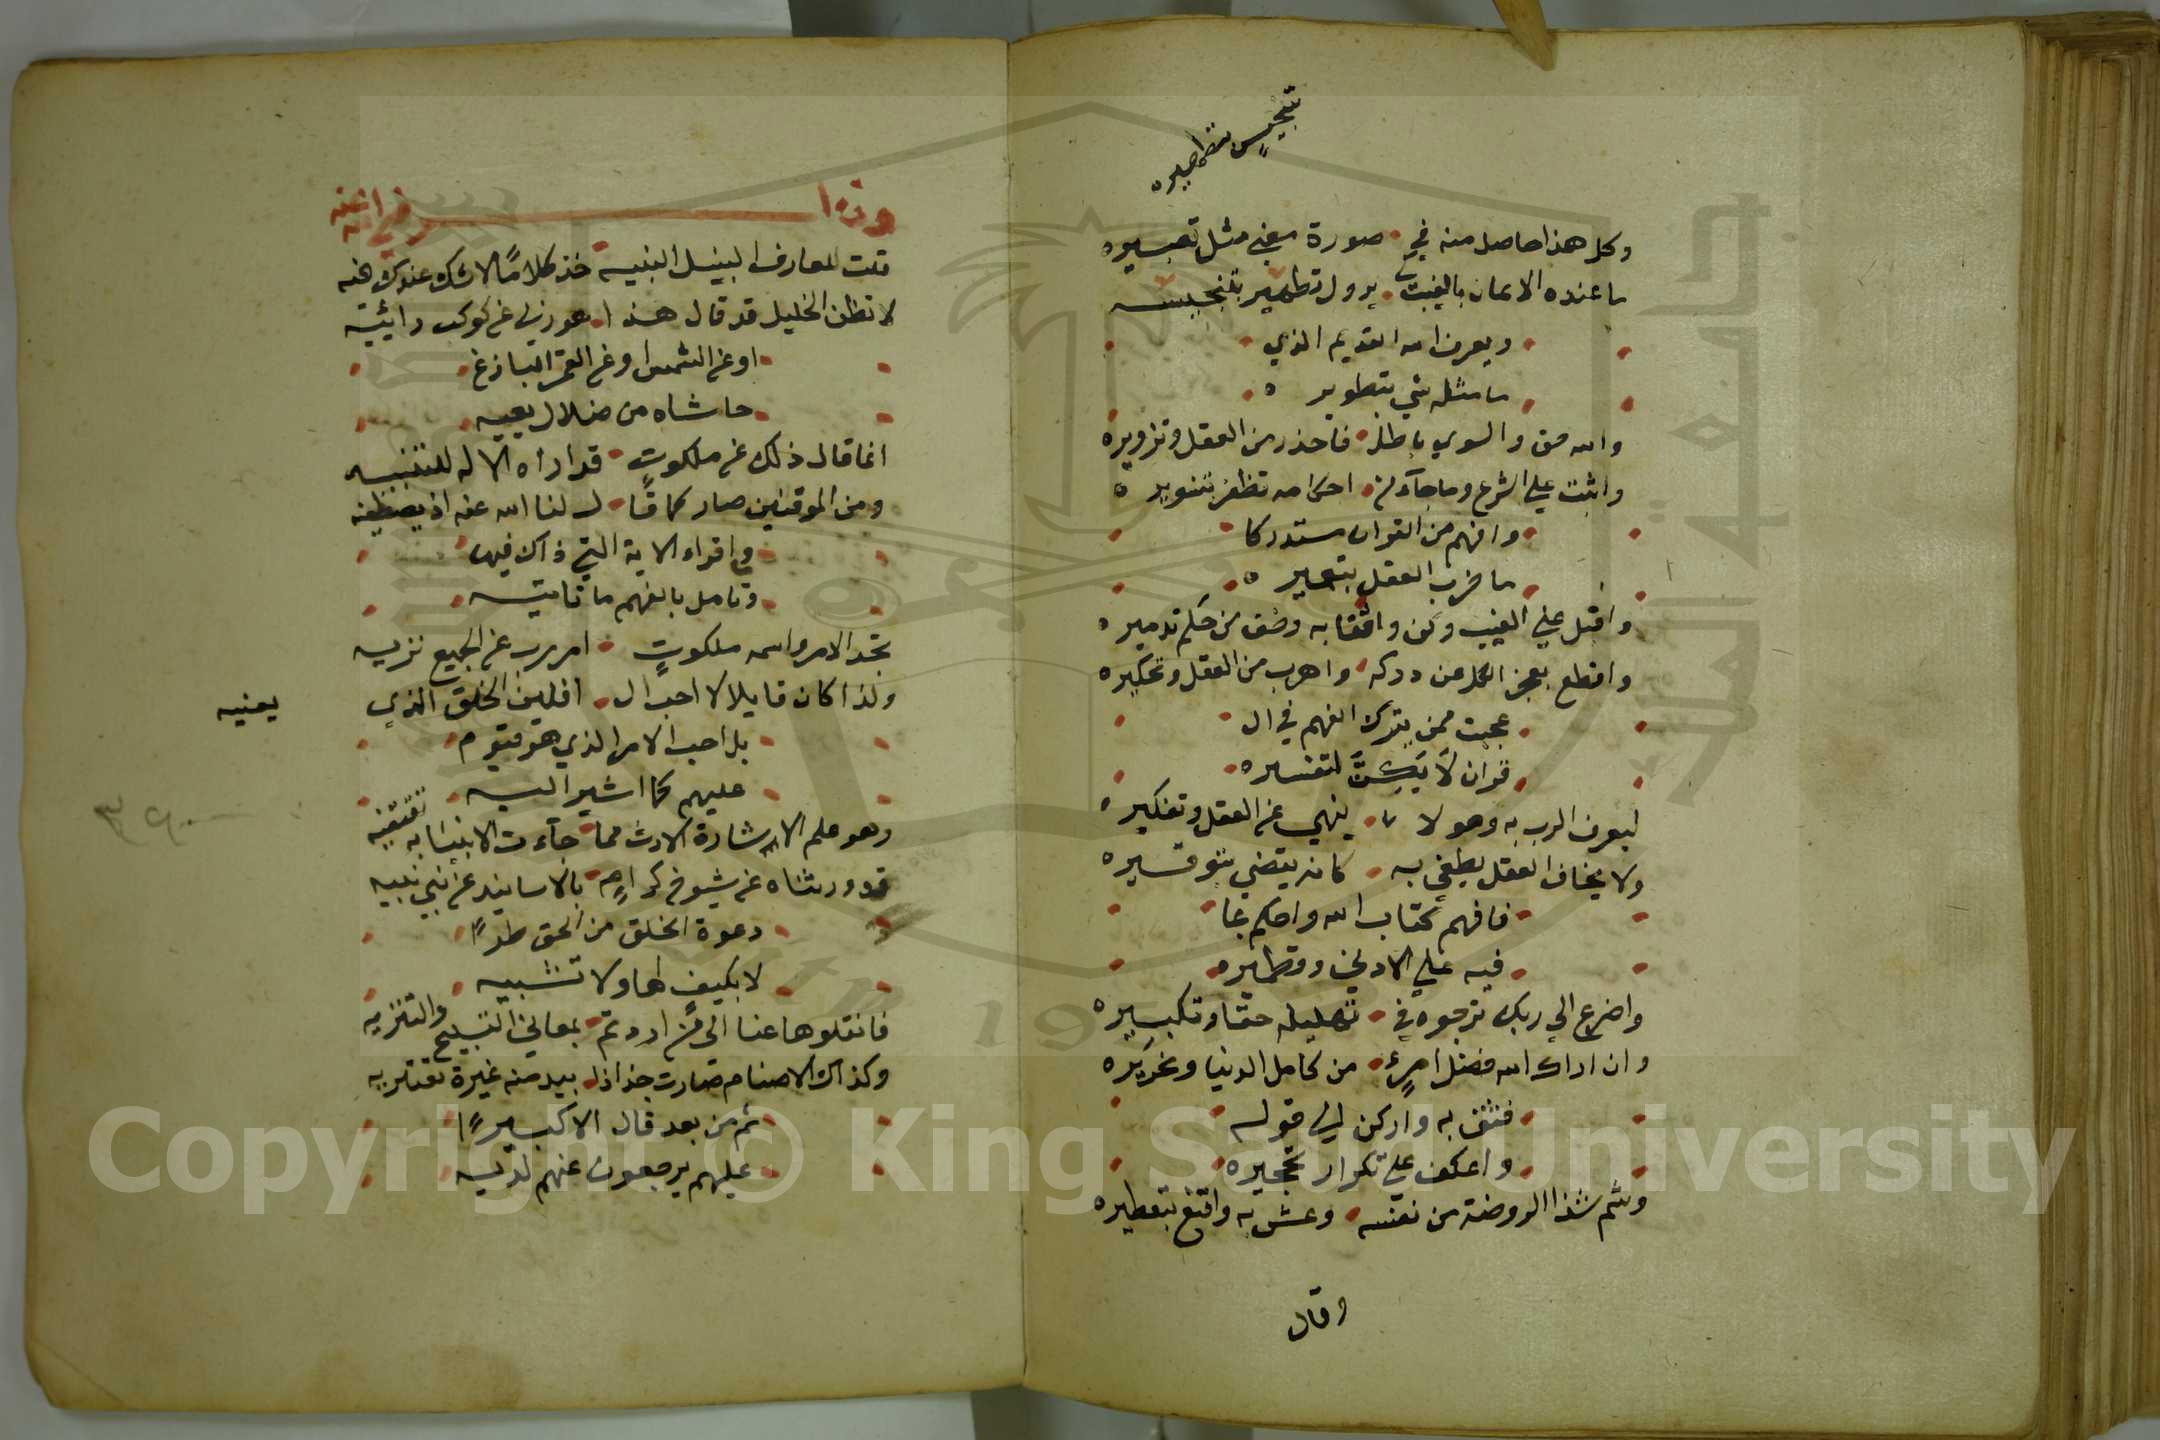 تنجيس تطهيره
وكل هذا حاصل منه في صورة معنى مثل تعبيره
ما عنده الايمان بالغيب بل يرول تطهير بتنجيسه
ويعرف الله القديم الذي
ما مثله شي بتطوير
والله حق والسوي باطل فاحذر من العقل وتزويره
واثبت على الشرع وما جآء من احكامه تظفر بتنوير
وافهم من القران مستدركا
ما خرب العقل بتعبير
واقبل على الغيب وكن واثقا به وضق من حكم تدميره
واقطع بعجز الكل عن دركه واهرب من العقل وتحكيره
عجبت ممن يترك الفهم في ال
قران لا يسكت لتفسيره
ليعرف الرب به وهو لا ينهى عن العقل وتفكيره
ولا يخاف العقل يطغى به كانه يقضي بتوقسيره
فافهم كتاب الله واحكم بما
فيه على الادنى وقطميره
واضرع الى ربك ترجوه في تهليله حقا وتكبيره
وان اراك الله فضل امرئ من كامل الدنيا ونحريره
فثق به واركن الى قوله
واعكف على تكرار تحجيره
وشم شذا الروضة من نفسه وعش به واقنع بتعطيره
وقال
وقال رضي الله عنه
قلت للعارف النبيل النبيه خذ كلاما لا شك عندك فيه
لا تظن الخليل قد قال هذا هو ربي عن كوكب رائيه
او عن الشمس او عن القمر البازغ
حاشاه من ضلال يعيه
انما قال ذلك عن ملكوت قد اراه الاله للتنبيه
ومن الموقنين صار كما قال لنا الله عنه اذ يصطفيه
واقراء الاية التي ذاك فيها
وتامل بالفهم ما تاتيه
تجد الامر واسمه ملكوت امر رب عن الجميع نزيه
ولذا كان قايلا لا احب ال افلين الخلق الذي يعنيه
بل احب الامر الذي هو قيوم
عليهم كما اشير اليه
وهو علم الارشادة الارث مما جاءت الانبيا به تقتفيه
قد ورثناه عن شيوخ كرام بالاسانيد عن نبي نبيه
دعوة الخلق من الحق طرا
لا بكيف لها ولا تشبيه
فانقلوها عنا الى من اردتم بمعاني التسبيح والتنزيه
وكذاك الاصنام صارت جذاذا بيد منه غيرة تعتريه
ثم من بعد قال الا كبيرا
عليهم يرجعون عنهم لديه
Copyright © King Saud University
جامعة الملك سعود